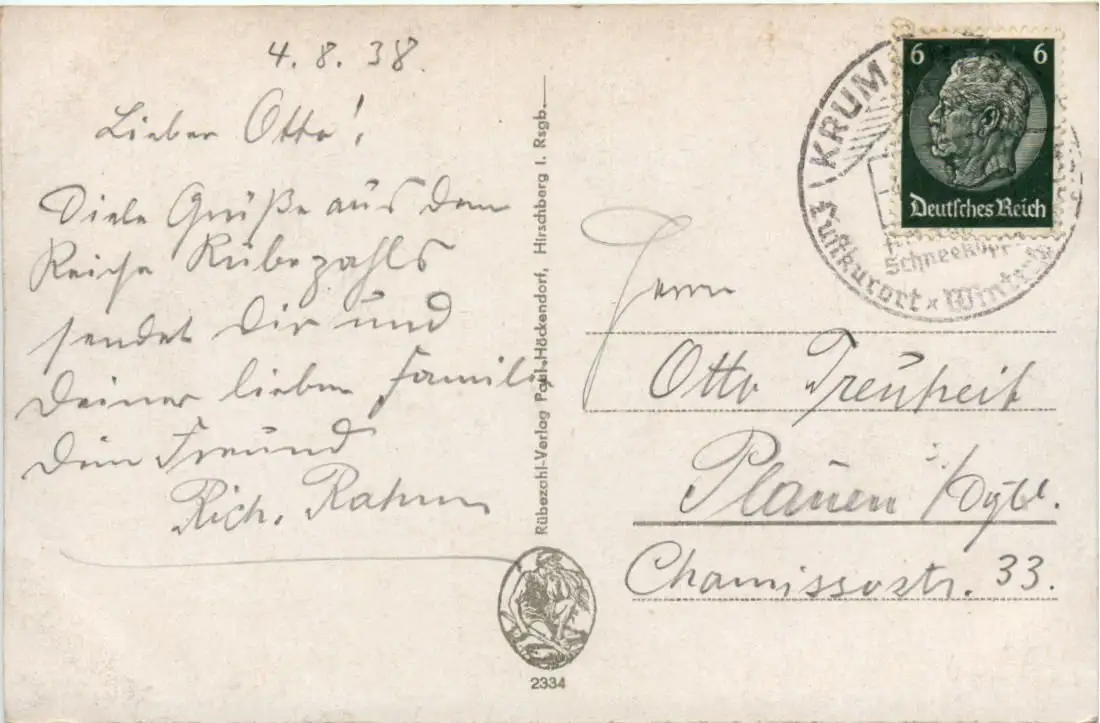 4.8.38.
Lieber Otto!
Viele Grüße aus dem
Reiche Rübezahls
sendet Dir und
Deiner lieben Familie
Dein Freund
Rich. Rahm
Rübezahl-Verlag Paul Höckendorf, Hirschberg i. Rsgb.
2334
6 6
Deutsches Reich
KRUM
Schneekopp
Luftkurort x Winter
Herrn
Otto Treuheit
Plauen i/Vgtl.
Chamissostr. 33.